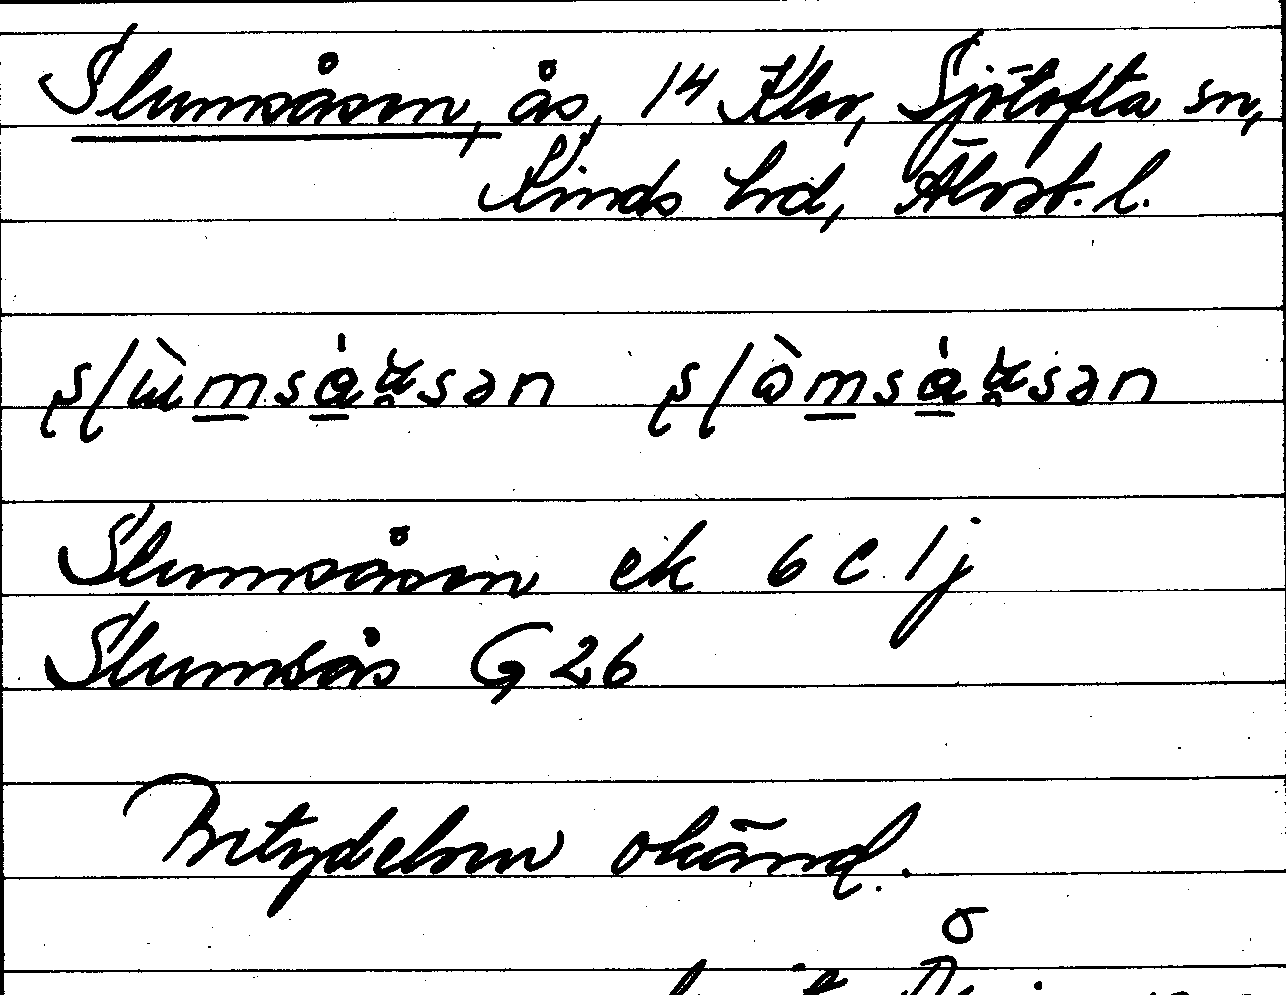 Slumsåsen, ås, 14 Klev, Sjötofta sn,
Kinds hd, Älvsb. l.
Slumsåsen ek 6 C 1 j
Slumsås G 26
Betydelsen okänd.